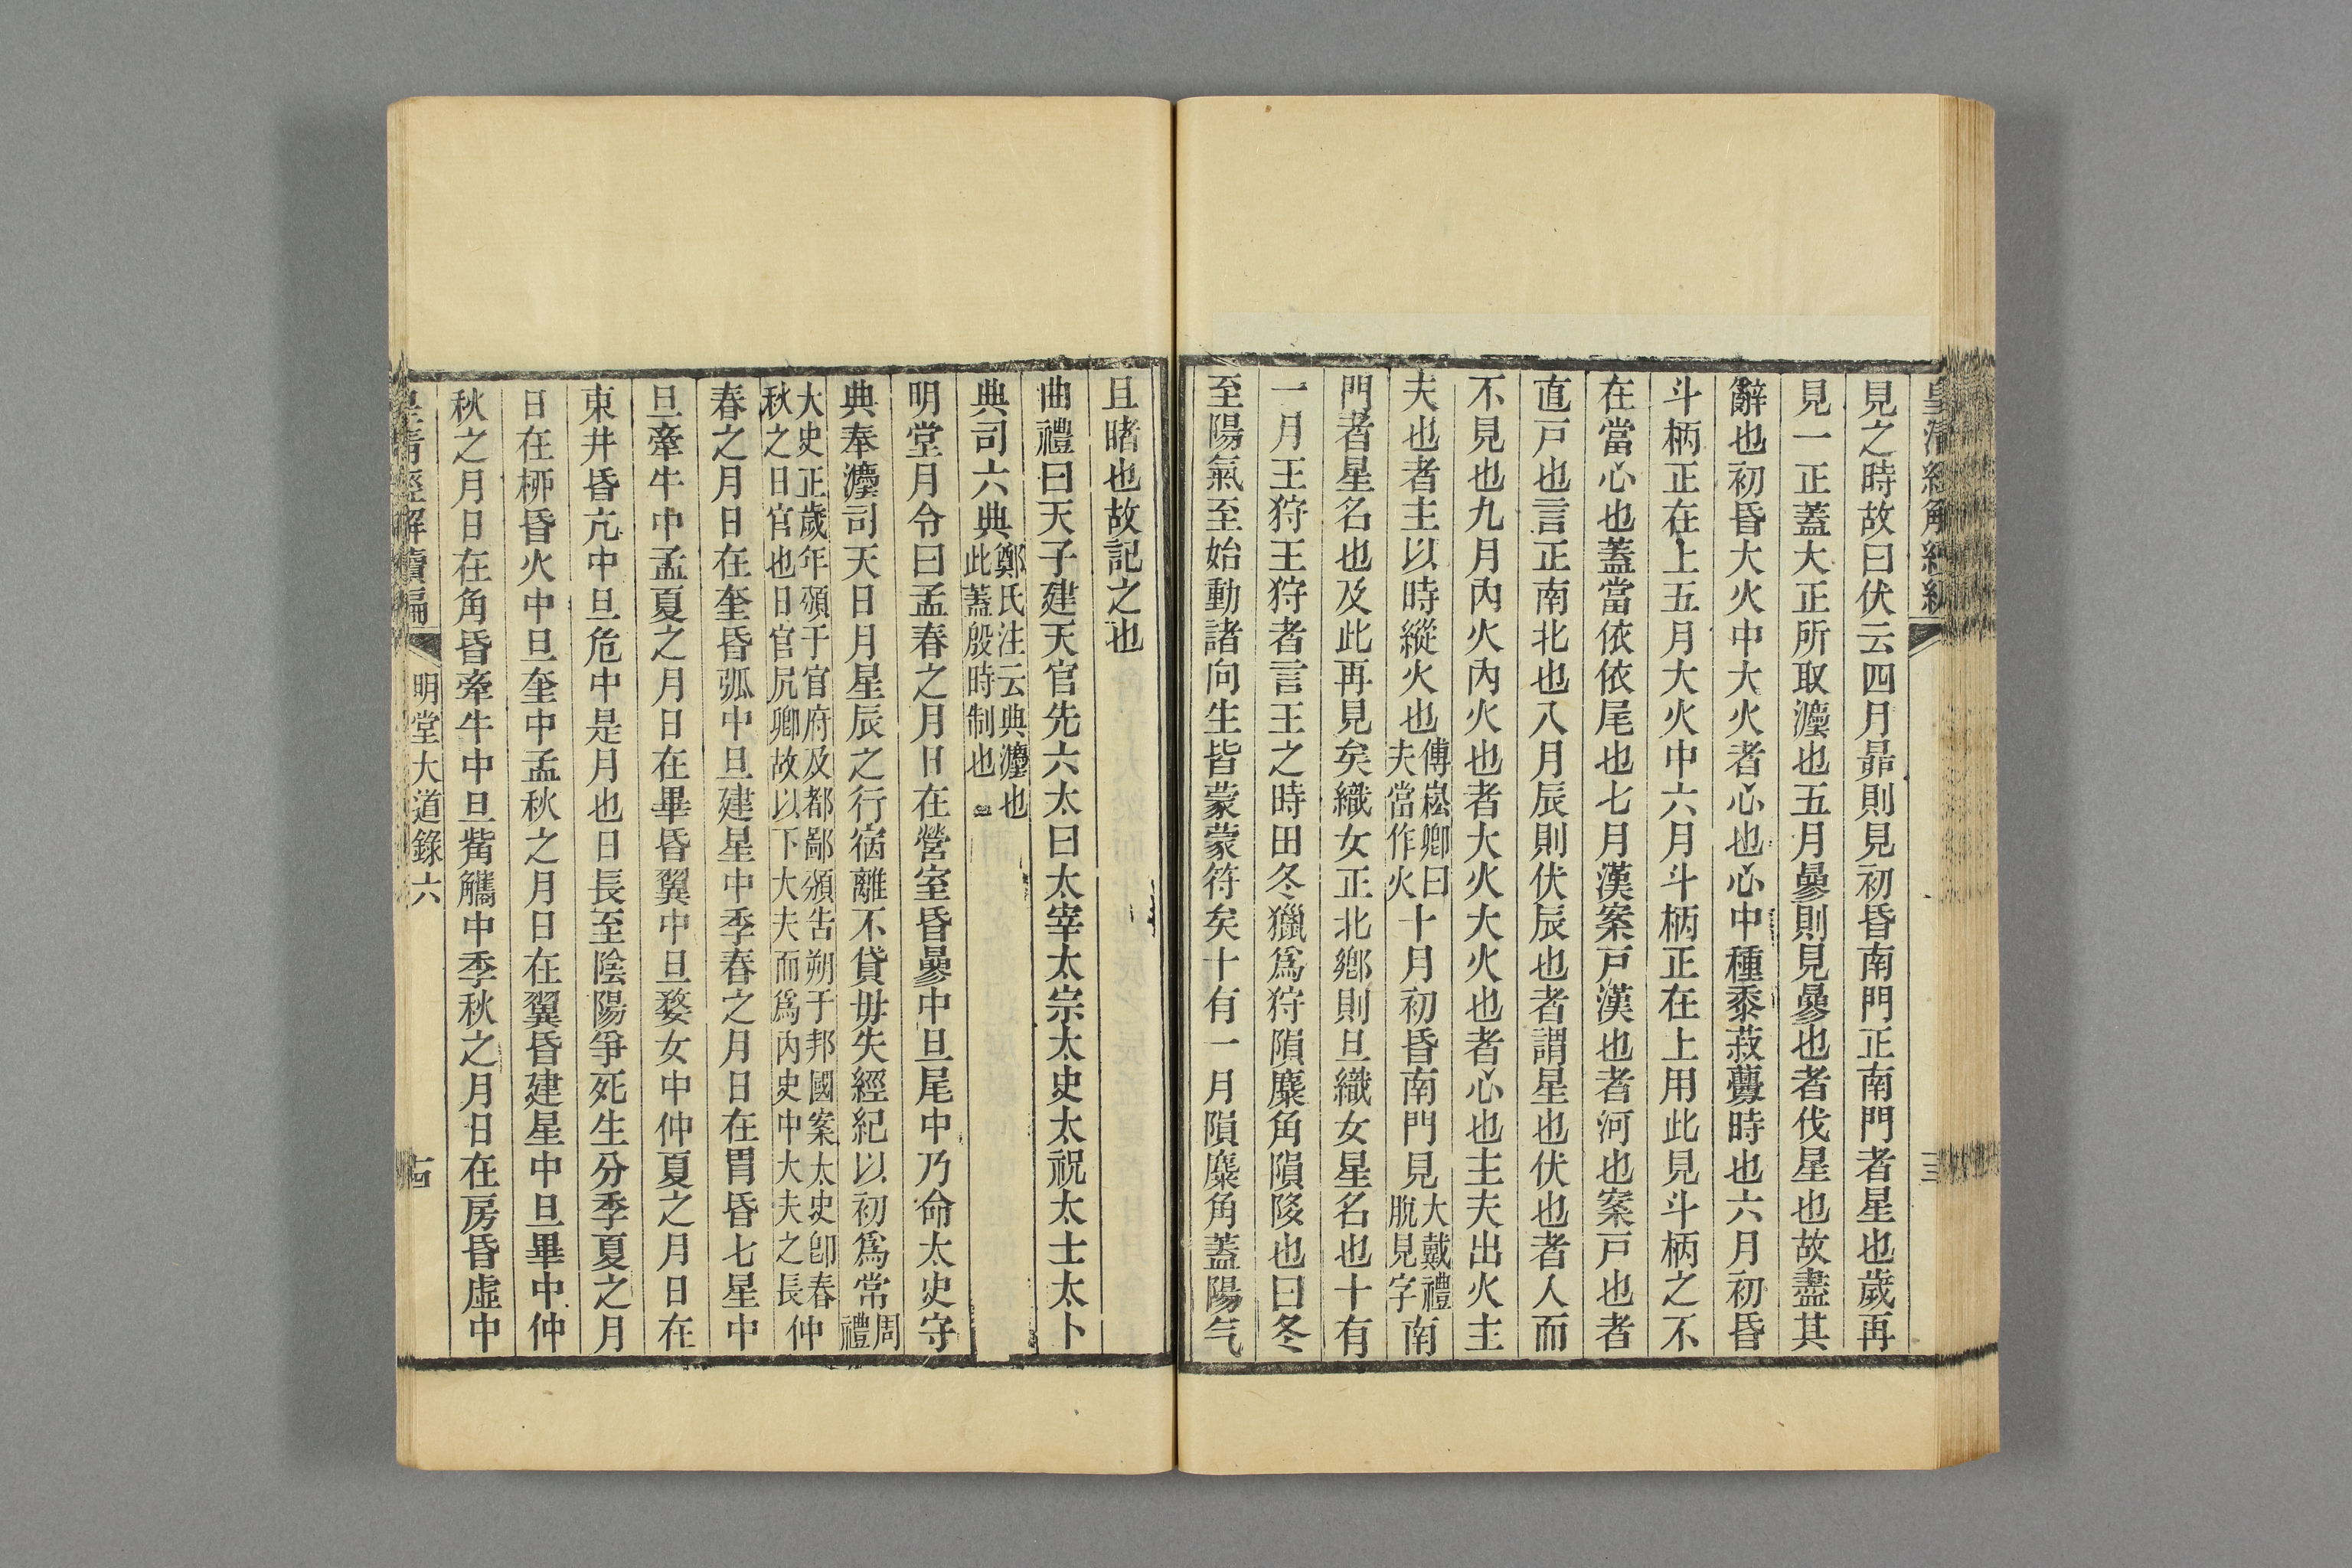 見之時故曰伏云四月昴則見初昏南門正南門者星也歲再
見一正蓋大正所取灋也五月曑則見曑也者伐星也故盡其
辭也初昏大火中大火者心也心中種黍菽蘪時也六月初昏
斗柄正在上五月大火中六月斗柄正在上用此見斗柄之不
在當心也蓋當依依尾也七月漢案戸漢也者河也案戸也者
直戸也言正南北也八月辰則伏辰也者謂星也伏也者人而
不見也九月內火內火也者大火大火也者心也主夫出火主
夫也者主以時縱火也傅崧卿曰夫當作火十月初昏南門見大戴禮脫見字南
門者星名也及此再見矣織女正北鄉則旦織女星名也十有
一月王狩王狩者言王之時田冬獵爲狩隕麋角隕陊也曰冬
至陽氣至始動諸向生皆蒙蒙符矣十有一月隕麋角蓋陽气
且睹也故記之也
曲禮曰天子建天官先六太曰太宰太宗太史太祝太士太卜
典司六典鄭氏注云典灋也此蓋殷時制也
明堂月令曰孟春之月日在營室昏曑中旦尾中乃命太史守
典奉灋司天日月星辰之行宿離不貸毋失經紀以初爲常周禮
大史正歲年頒于官府及都鄙頒告朔于邦國案太史卽春秋之日官也日官凥卿故以下大夫而爲內史中大夫之長仲
春之月日在奎昏弧中旦建星中季春之月日在胃昏七星中
旦牽牛中孟夏之月日在畢昏翼中旦婺女中仲夏之月日在
東井昏亢中旦危中是月也日長至陰陽爭死生分季夏之月
日在桺昏火中旦奎中孟秋之月日在翼昏建星中旦畢中仲
秋之月日在角昏牽牛中旦觜觿中季秋之月日在房昏虛中
皇清經解續編
明堂大道錄六
古